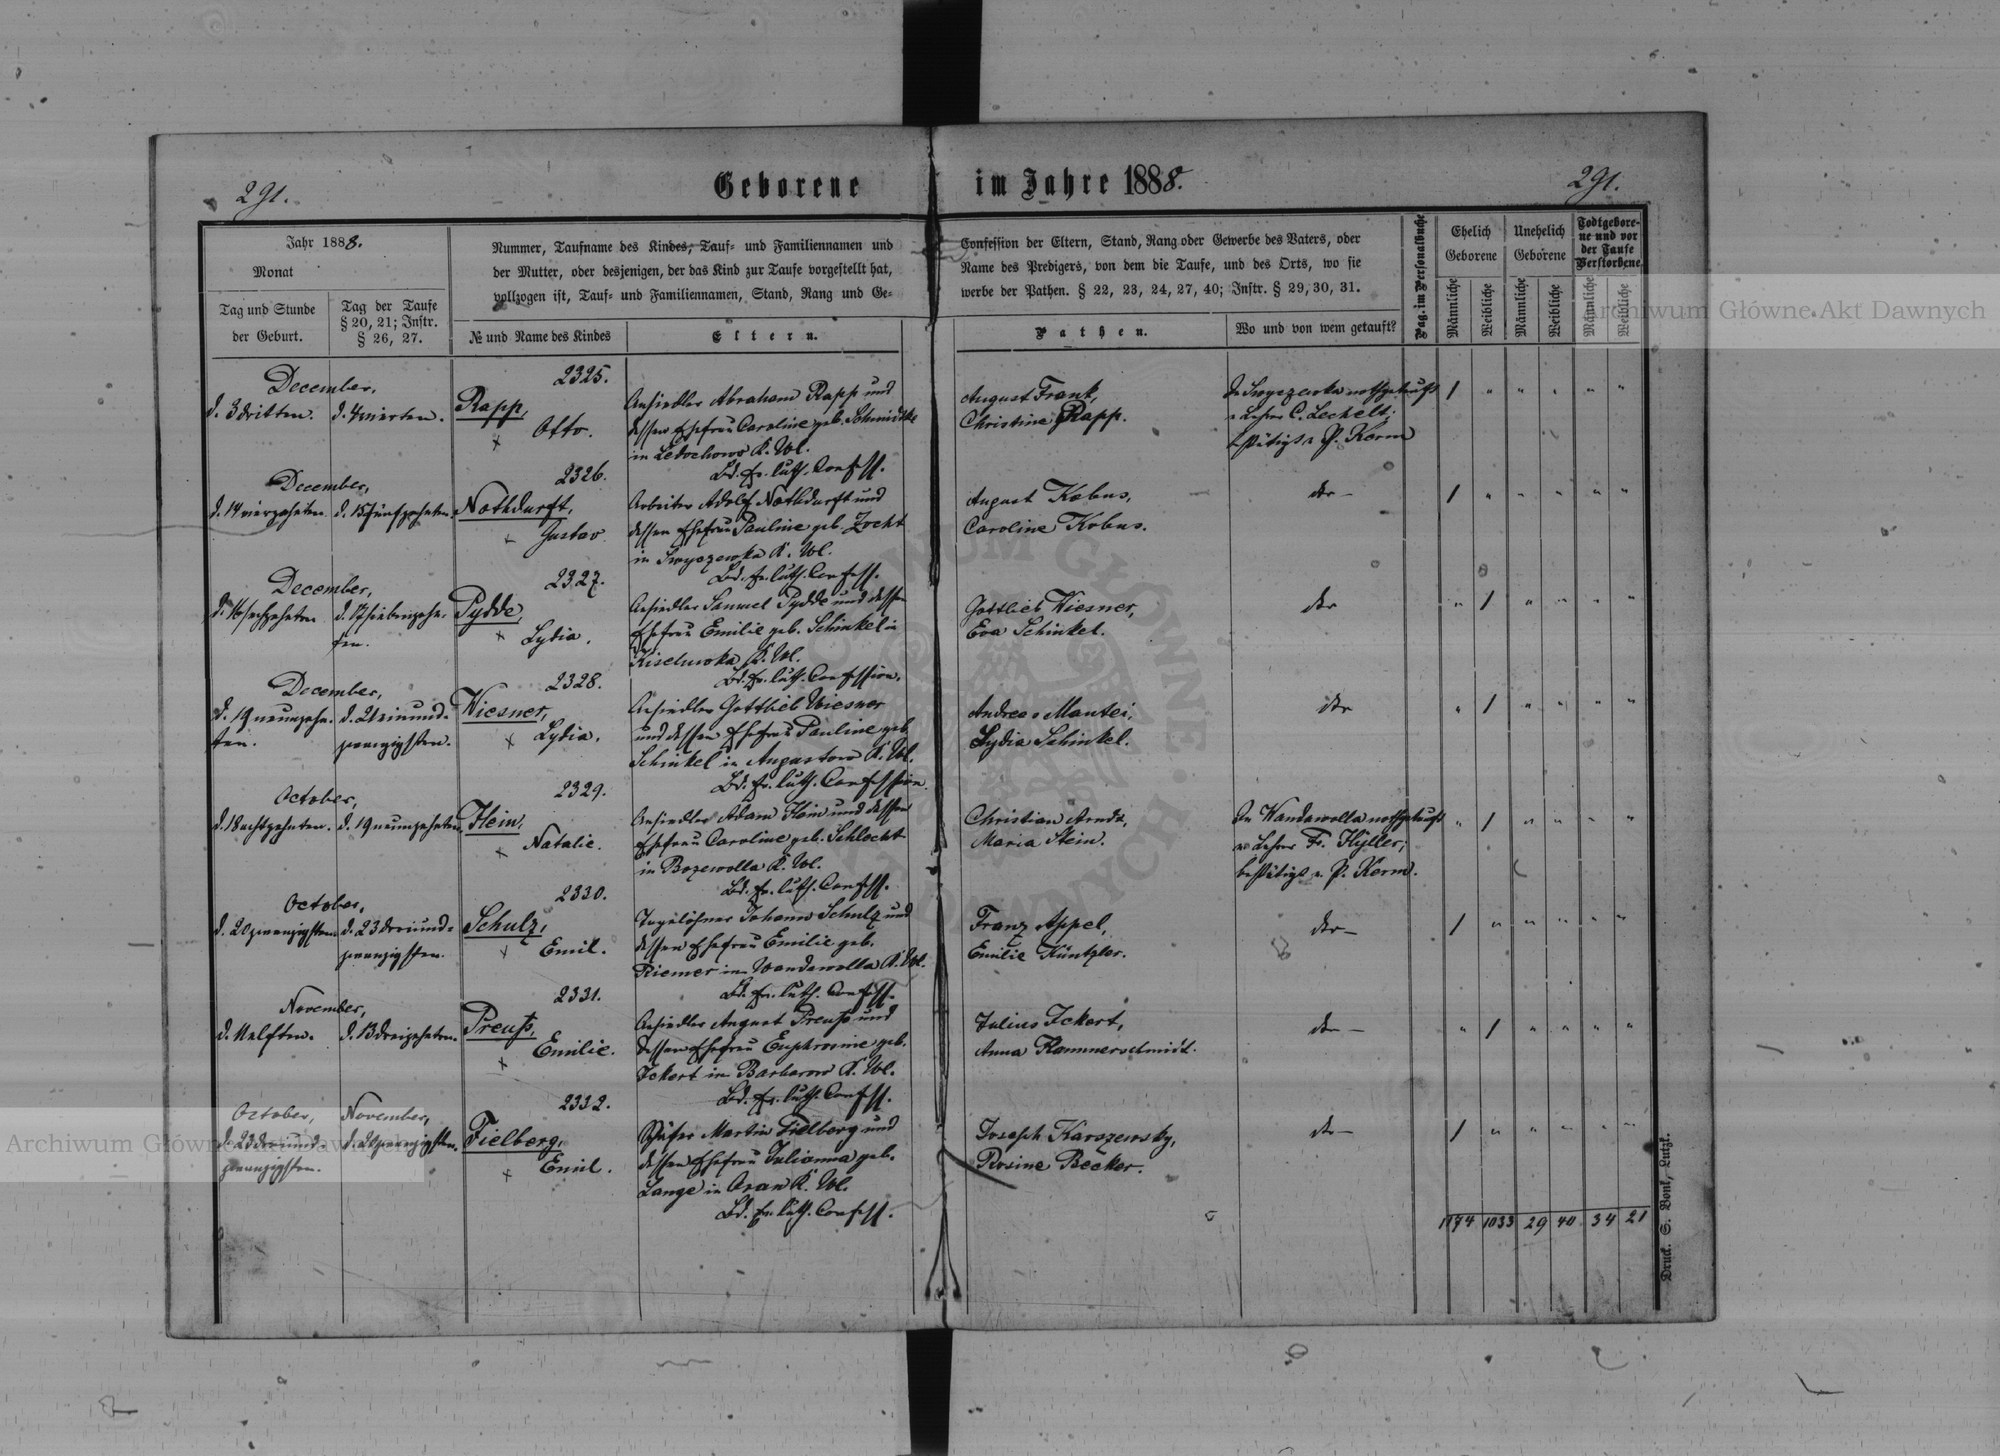 291.
Geborene im Jahre 1888.
291.
Jahr 1888.
Monat
Tag und Stunde
der Geburt.
Tag der Taufe
§ 20, 21; Instr.
§ 26, 27.
Nummer, Taufname des Kindes, Tauf- und Familiennamen und
der Mutter, oder desjenigen, der das Kind zur Taufe vorgestellt hat,
vollzogen ist, Tauf- und Familiennamen, Stand, Rang und Ge-
№ und Name des Kindes
Eltern.
Confession der Eltern, Stand, Rang oder Gewerbe des Vaters, oder
Name des Predigers, von dem die Taufe, und des Orts, wo sie
werbe der Pathen. § 22, 23, 24, 27, 40; Instr. § 29, 30, 31.
Pathen.
Wo und von wem getauft?
Pag. im Personalbuche
Ehelich
Geborene
Unehelich
Geborene
Todtgebore-
ne und vor
der Taufe
Verstorbene
Männliche
Weibliche
Männliche
Weibliche
Männliche
Weibliche
December,
d. 3 dritten. d. 4 vierten.
2325.
Rapp,
Otto.
Ansiedler Abraham Rapp und
dessen Ehefrau Caroline geb. Schmidtke
in Ledochowo K. Wl.
Bd. Ev. luth. Confess.
August Frank,
Christine Rapp.
nothgetauft
v. Lehrer C. Lechelt;
bestätigt v. P. Kerm
1 " " " " "
December,
d. 14 vierzehnten d. 15 fünfzehnten.
2326.
Nothdurft,
Gustav.
Arbeiter Adolf Nothdurft und
dessen Ehefrau Pauline geb. Zocht
in K. Wl.
Bd. Ev. luth. Confess.
August Kobus,
Caroline Kobus.
dto
1 " " " " "
December,
d. 16 sechzehnten d. 17 siebenzehn-
ten.
2327.
Pydde,
Lydia.
Ansiedler Samuel Pydde und dessen
Ehefrau Emilie geb. Schinkel in
Kiselewka K. Wl.
Bd. Ev. luth. Confession.
Gottlieb Wiesner,
Eva Schinkel.
dto
" 1 " " " "
December,
d. 19 neunzehn- d. 21 einund-
ten. zwanzigsten.
2328.
Wiesner,
Lydia.
Ansiedler Gottlieb Wiesner
und dessen Ehefrau Pauline geb.
Schinkel in Augustow K. Wl.
Bd. Ev. luth. Confession.
Andreas Mantei,
Lydia Schinkel.
dto
" 1 " " " "
October,
d. 18 achtzehnten. d. 19 neunzehnten
2329.
Hein,
Natalie.
Ansiedler Adam Hein und dessen
Ehefrau Caroline geb. Schlecht
in Bozewolla K. Wl.
Bd. Ev. luth. Confess.
Christian Arndt,
Maria Stein.
In Wandawolla nothgetauft
v. Lehrer Fr. Hyller;
bestätigt v. P. Kerm.
" 1 " " " "
October,
d. 20 zwanzigsten d. 23 dreiund-
zwanzigsten.
2330.
Schulz,
Emil.
Tagelöhner Johann Schulz und
dessen Ehefrau Emilie geb.
Riemer in Wandawolla K. Wl.
Bd. Ev. luth. Confess.
Franz Appel,
Emilie Küntzler.
dto
1 " " " " "
November,
d. 11 elften. d. 13 dreizehnten.
2331.
Preuß,
Emilie.
Ansiedler August Preuß und
dessen Ehefrau Euphrosine geb.
Ickert in Barbarow K. Wl.
Bd. Ev. luth. Confess.
Julius Ickert,
Anna Kammerschmidt.
dto
" 1 " " " "
October, November,
d. 23 dreiund- d. 20 zwanzigsten.
zwanzigsten.
2332.
Fielberg,
Emil.
Schäfer Martin Fielberg und
dessen Ehefrau Julianna geb.
Lange in Aran K. Wl.
Bd. Ev. luth. Confess.
Joseph Karszewsky,
Rosine Becker.
dto
1 " " " " "
1174 1033 29 40 34 21
Druck. S. Bonk, Lutzk.
Archiwum Główne Akt Dawnych
Archiwum Główne Akt Dawnych
ARCHIWUM GŁÓWNE AKT DAWNYCH